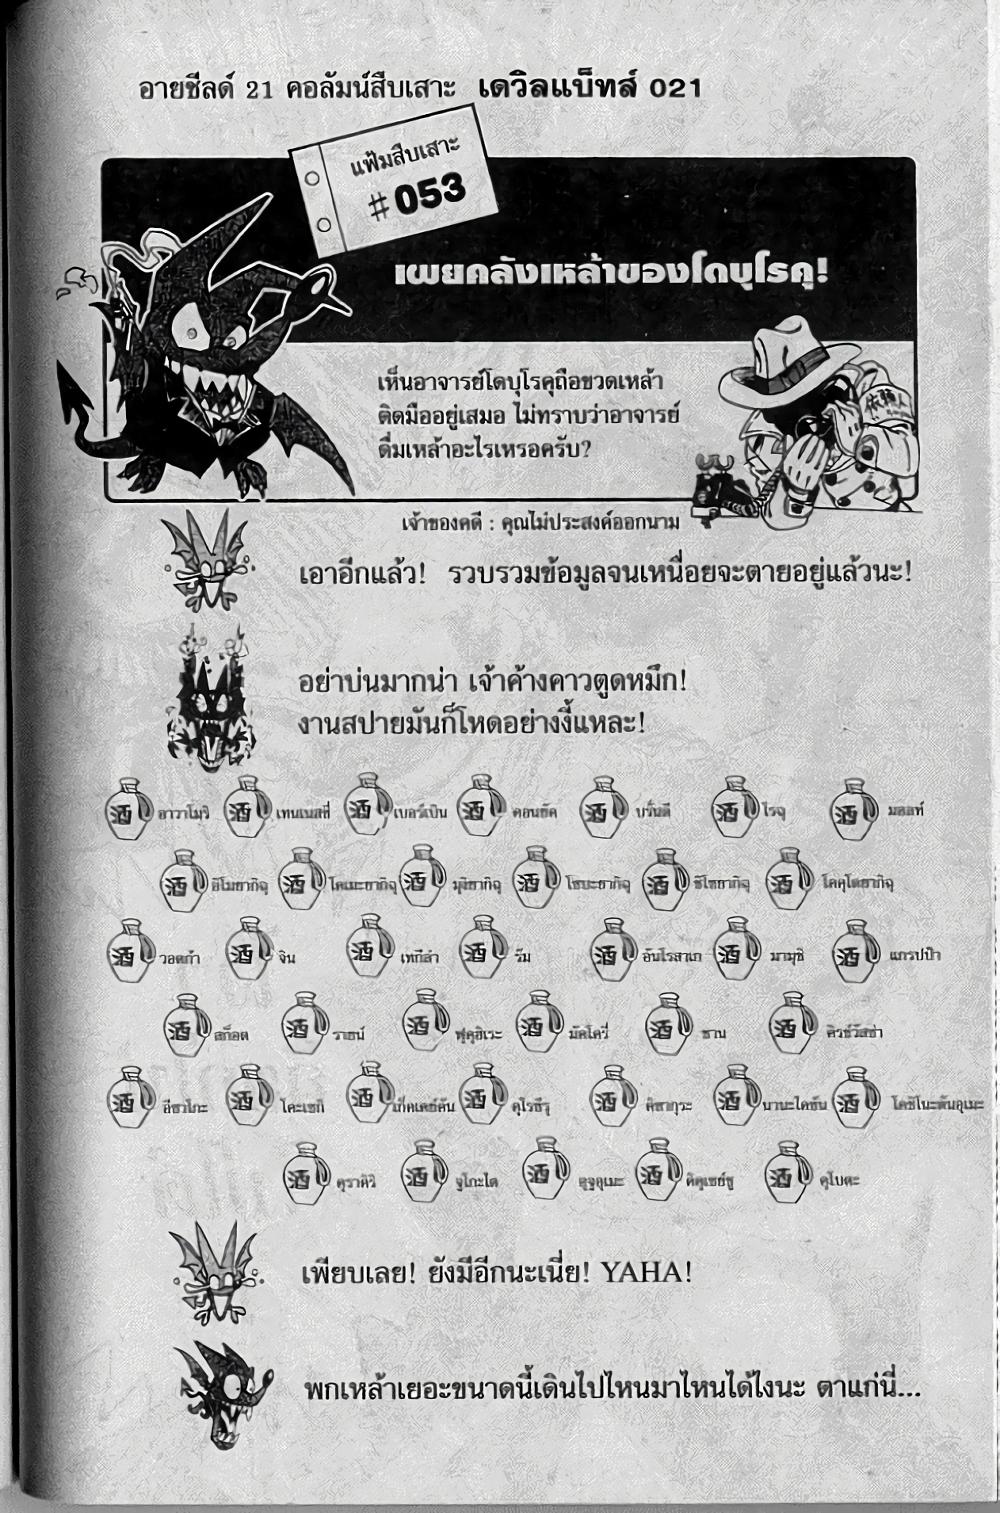 อายชีลด์ 21 คอลัมน์สืบเสาะ เดวิลแบ็ทส์ 021
แฟ้มสืบเสาะ
#053
เผยคลังเหล้าของโดบุโรคุ!
เห็นอาจารย์โดบุโรคุถือขวดเหล้า
ติดมืออยู่เสมอ ไม่ทราบว่าอาจารย์
ดื่มเหล้าอะไรเหรอครับ?
เจ้าของคดี : คุณไม่ประสงค์ออกนาม
เอาอีกแล้ว! รวบรวมข้อมูลจนเหนื่อยจะตายอยู่แล้วนะ!
อย่าบ่นมากน่า เจ้าค้างคาวตูดหมึก!
งานสปายมันก็โหดอย่างงี้แหละ!
酒 อาวาโมริ 酒 เทนเนสซี่ 酒 เบอร์เบิน 酒 คอนยัค 酒 บรั่นดี 酒 ไรจู 酒 มอลท์
酒 อิโมยากิจู 酒 โคเมะยากิจู 酒 มุงิยากิจู 酒 โซบะยากิจู 酒 ชิโซยากิจู 酒 โคคุโตยากิจู
酒 วอดก้า 酒 จิน 酒 เทกีล่า 酒 รัม 酒 อันโรสาเก 酒 มามุชิ 酒 แกรปป้า
酒 สก็อต 酒 ราฮน์ 酒 ฟุคุฮิเระ 酒 มัคโครี่ 酒 ซาน 酒 คิรช์วัสซ่า
酒 อีซาโกะ 酒 โคะเซกิ 酒 เก็คเคย์คัน 酒 คุโรชิจุ 酒 คิซากุระ 酒 นานะไดฮัน 酒 โคชิโนะคันอุเมะ
酒 คุราคิริ 酒 จูโกะได 酒 อุจูอุเมะ 酒 คิคุเซย์ชู 酒 คุโบตะ
เพียบเลย! ยังมีอีกนะเนี่ย! YAHA!
พกเหล้าเยอะขนาดนี้เดินไปไหนมาไหนได้ไงนะ ตาแก่นี่...